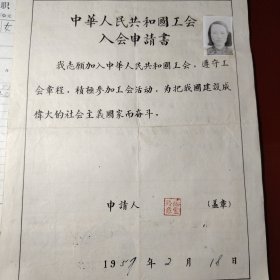 中華人民共和國工会
入会申請書
我志願加入中华人民共和國工会，遵守工
会章程，積極参加工会活动，为把我國建設成
偉大的社会主義國家而奋斗。
申請人
(蓋章)
1959年2月18日
职